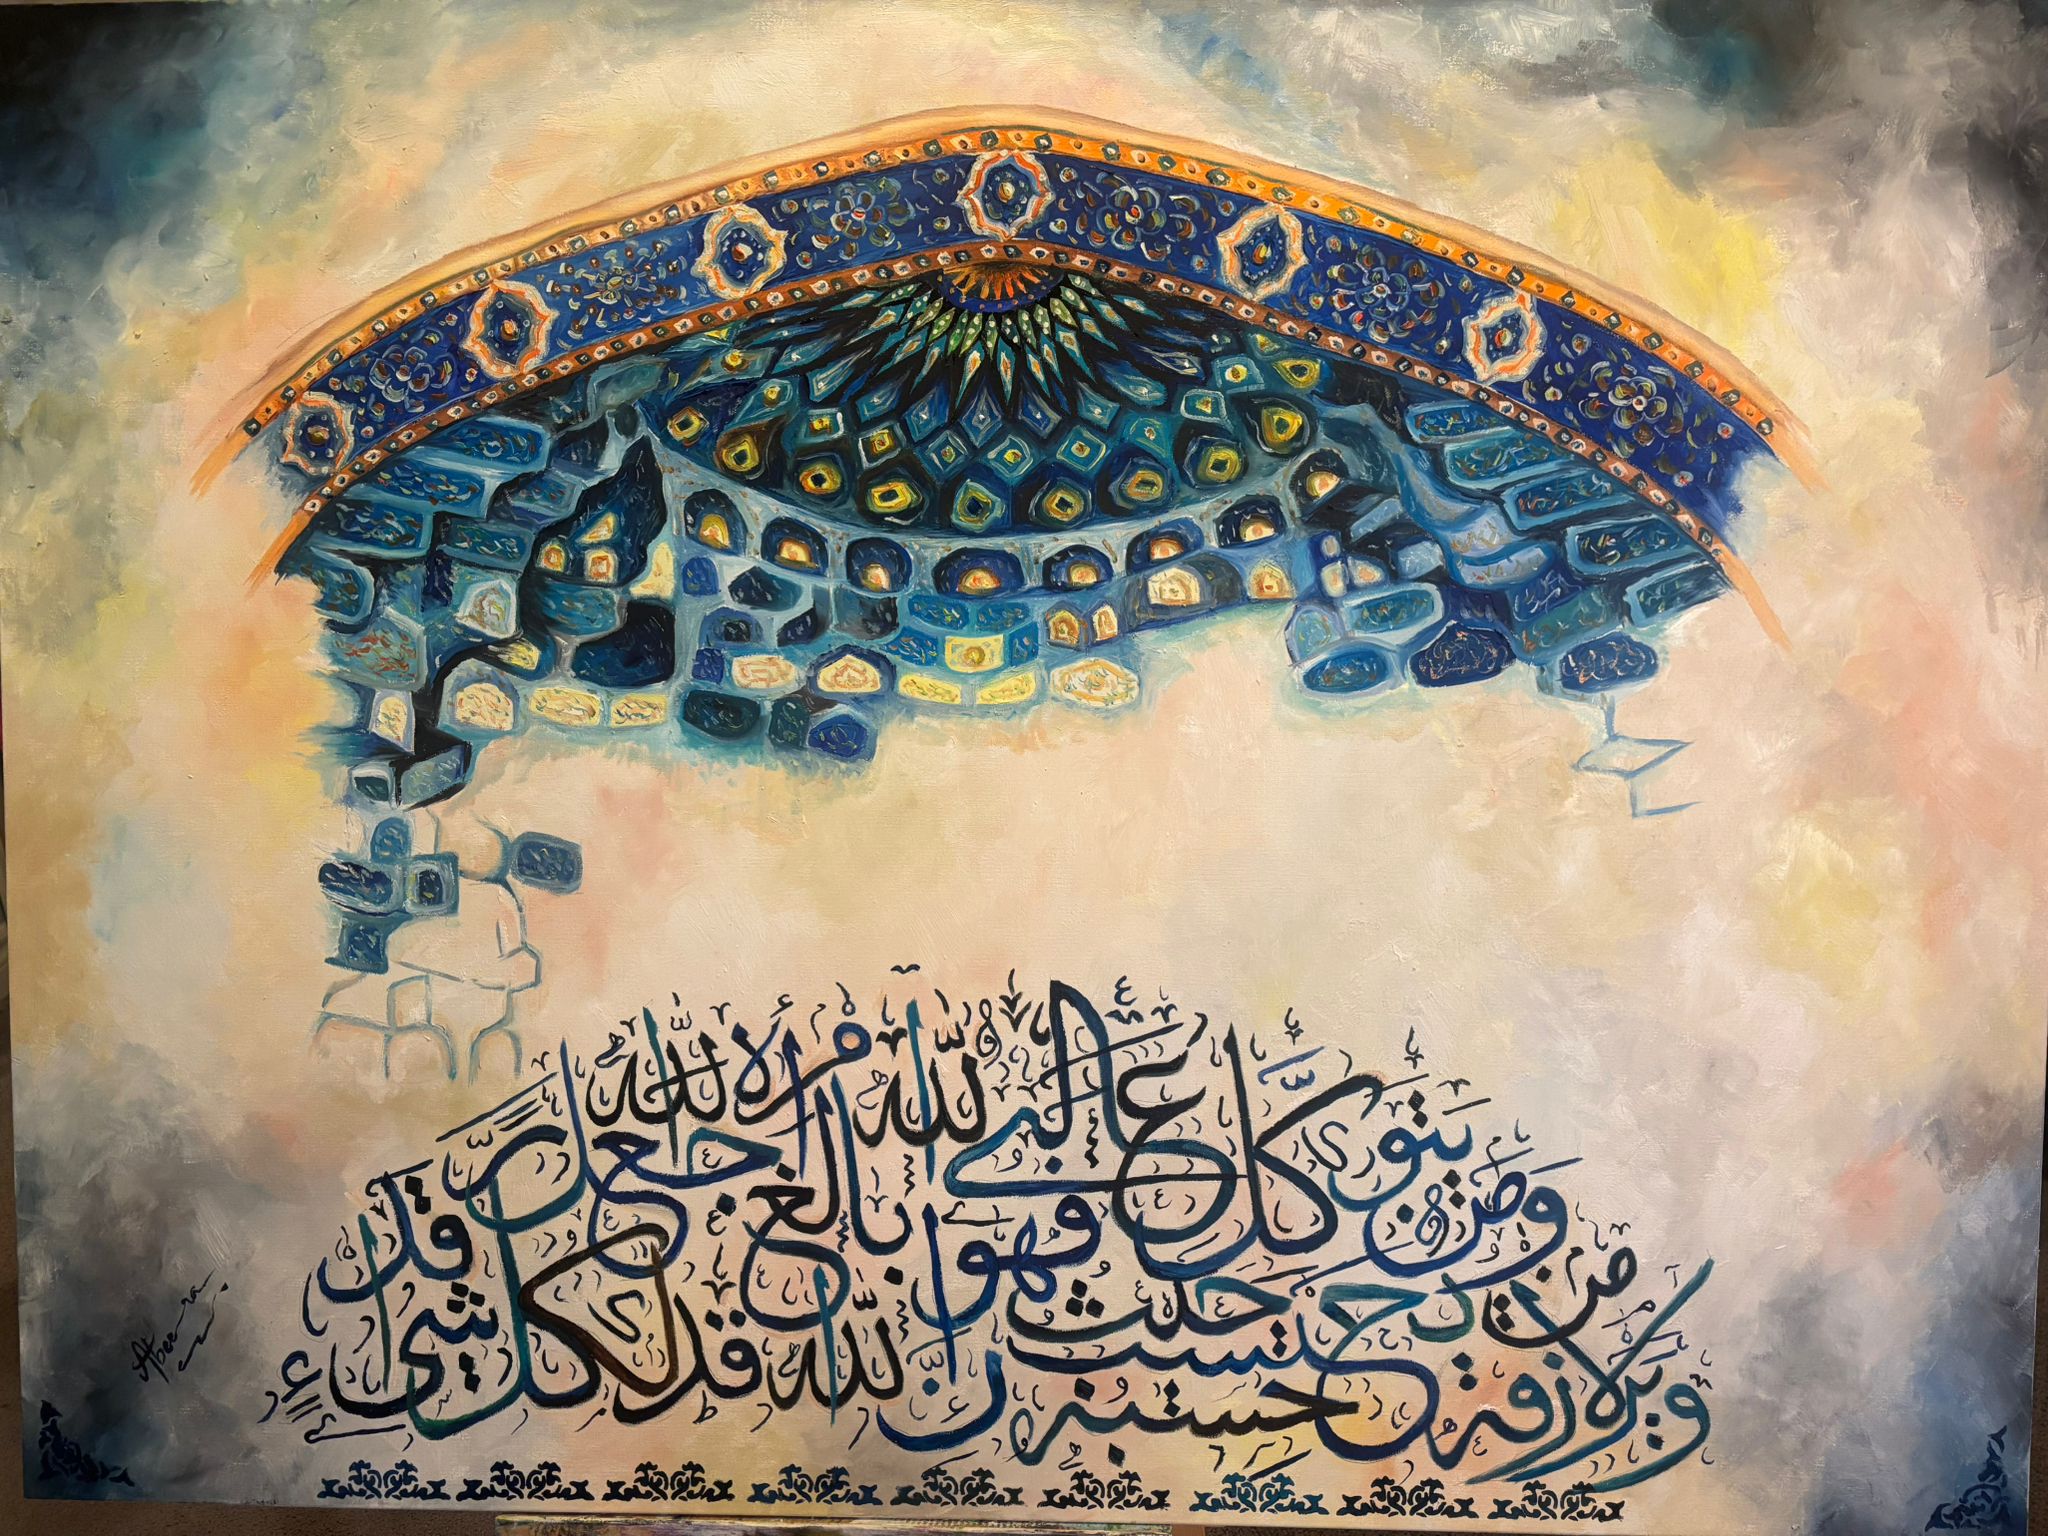 ويرزقه من حيث لا يحتسب ومن يتوكل على الله فهو حسبه إن الله بالغ أمره قد جعل الله لكل شيء قدرا
Abeera